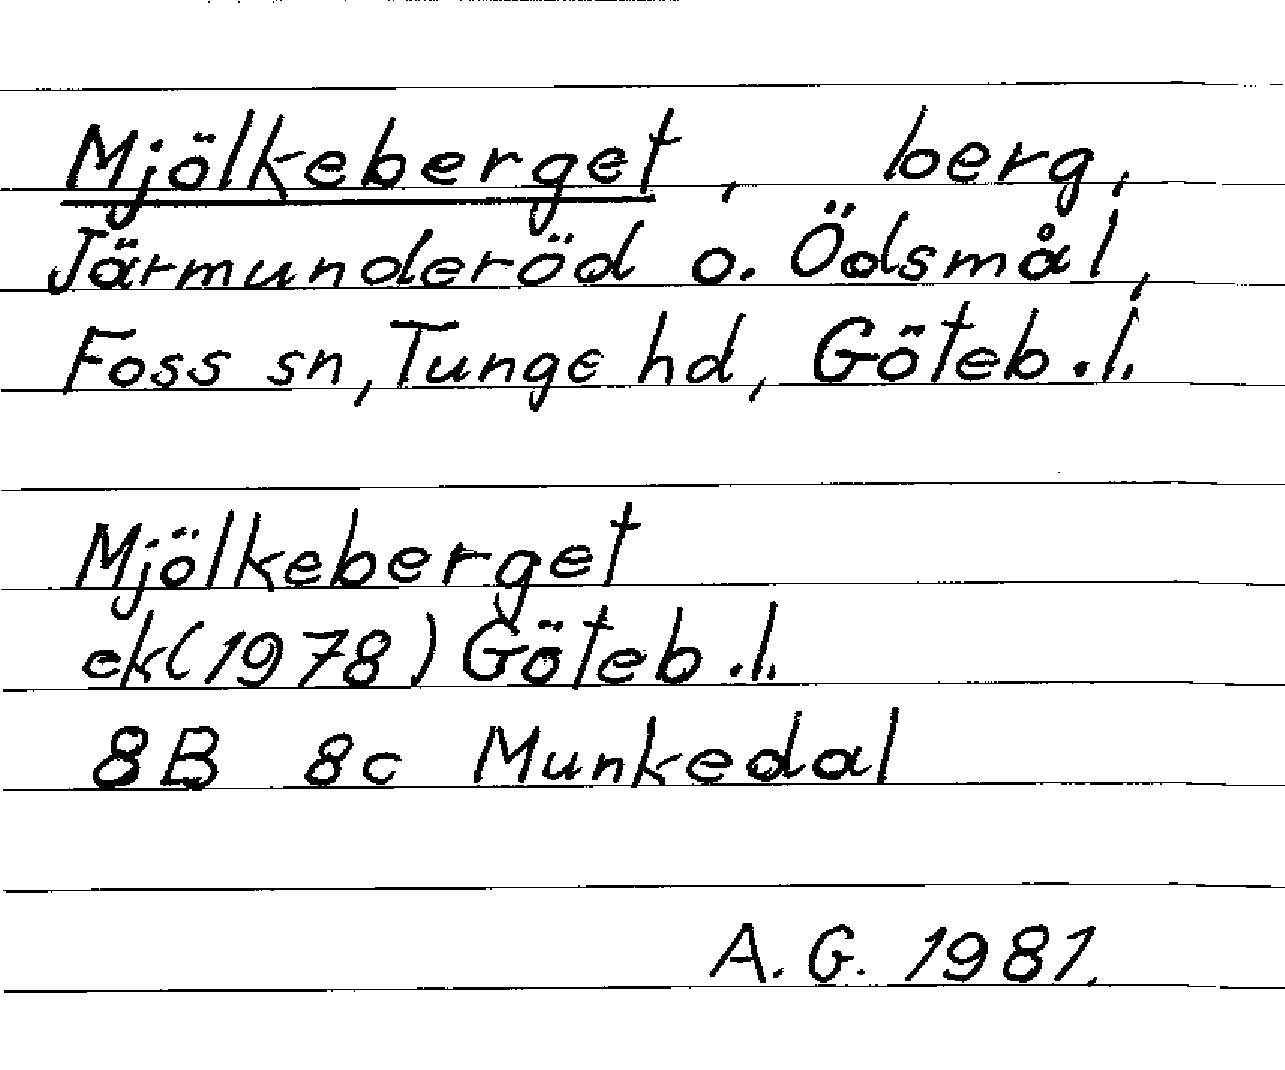 Mjölkeberget, berg,
Järmunderöd o. Ödsmål,
Foss sn, Tunge hd, Göteb.l.
Mjölkeberget
ek(1978) Göteb.l.
8B 8c Munkedal
A. G. 1981.